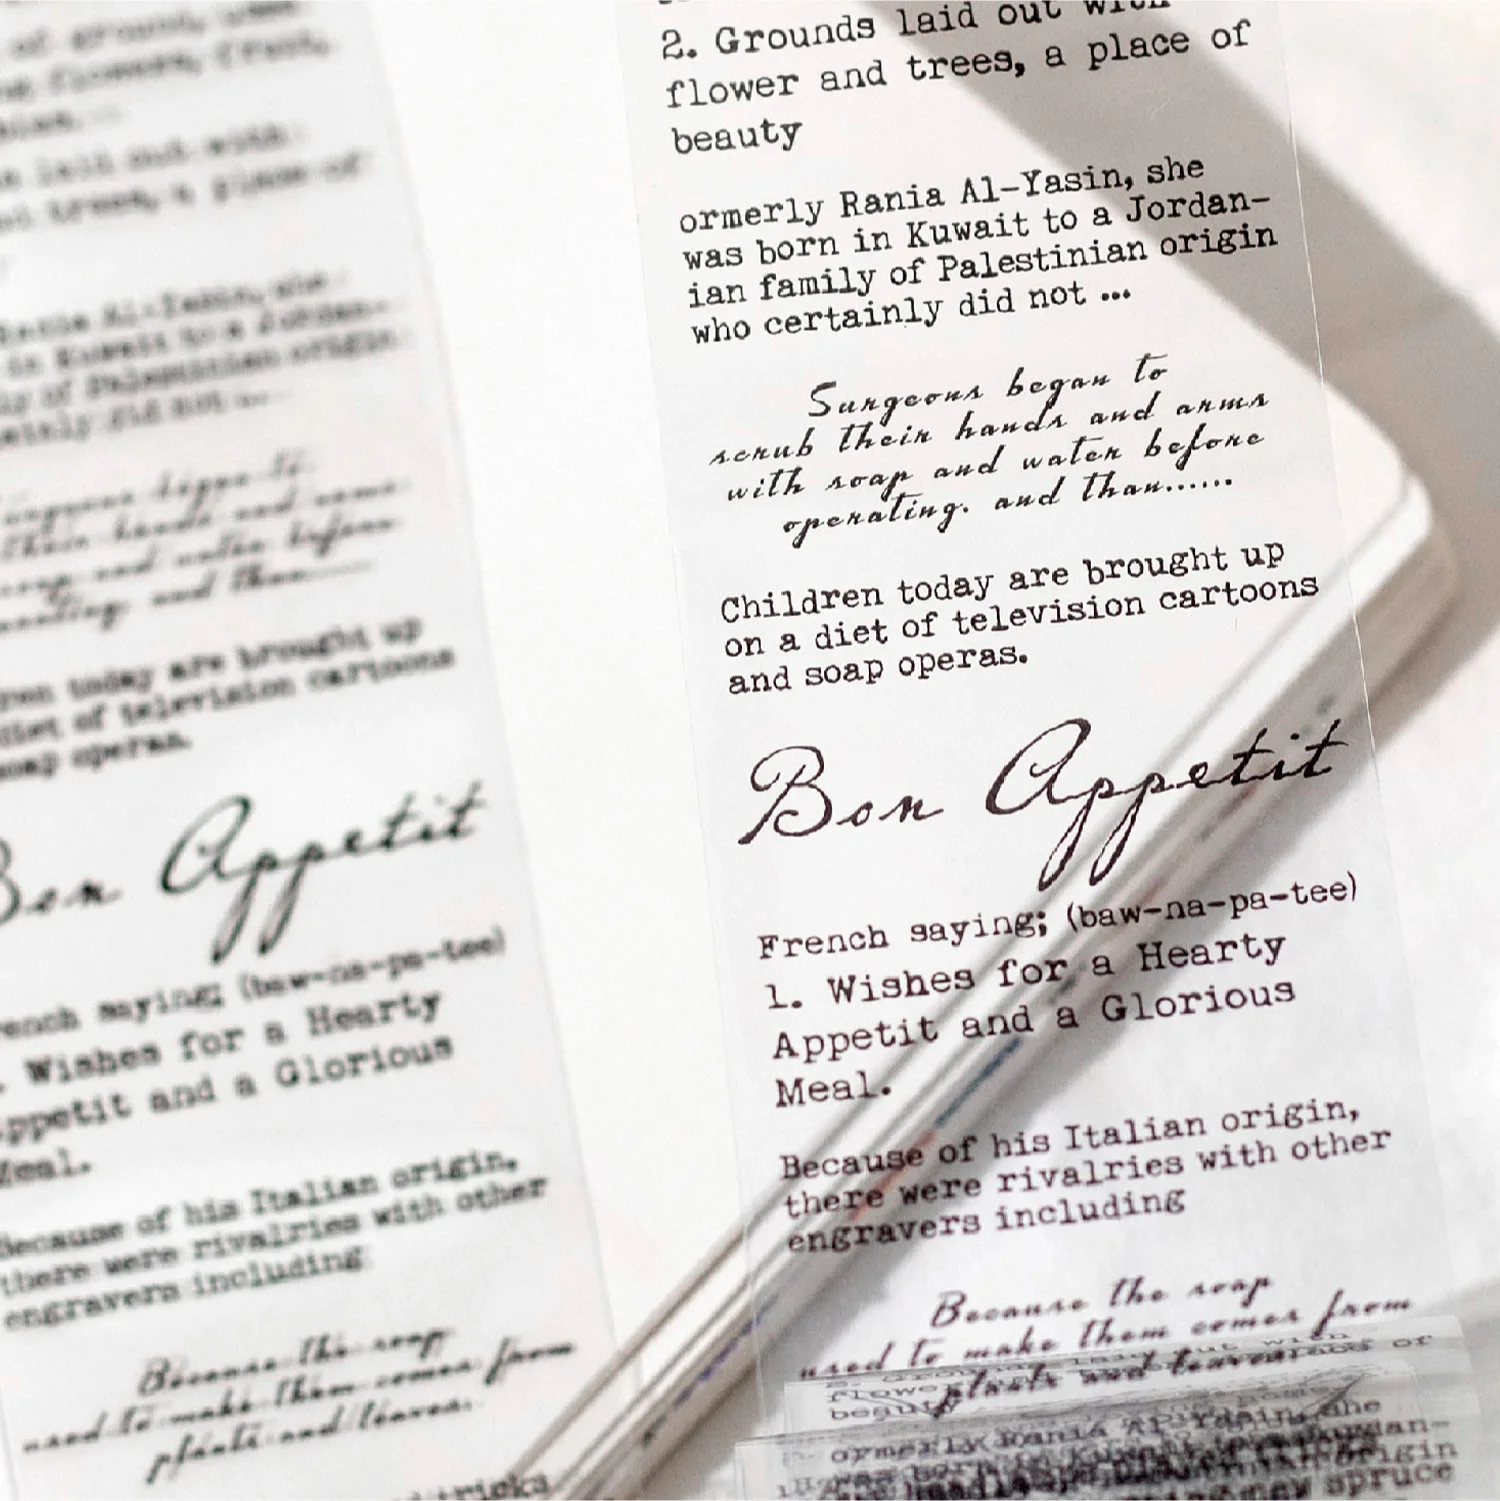 2. Grounds laid out with
flower and trees, a place of
beauty
ormerly Rania Al-Yasin, she
was born in Kuwait to a Jordan-
ian family of Palestinian origin
who certainly did not ...
Surgeons began to
scrub their hands and arms
with soap and water before
operating. and than......
Children today are brought up
on a diet of television cartoons
and soap operas.
Bon Appetit
French saying; (baw-na-pa-tee)
1. Wishes for a Hearty
Appetit and a Glorious
Meal.
Because of his Italian origin,
there were rivalries with other
engravers including
Because the soap
used to make them comes from
plants and leaves
of ground,
flowers, fruit,
laid out with
trees, a place of
Rania Al-Yasin, she
in Kuwait to a Jordan-
of Palestinian origin
did not ...
began to
their hands and arms
soap and water before
and than......
today are brought up
diet of television cartoons
soap operas.
Bon Appetit
French saying; (baw-na-pa-tee)
Wishes for a Hearty
Appetit and a Glorious
Meal.
Because of his Italian origin,
there were rivalries with other
engravers including
Because the soap
used to make them comes from
plants and leaves.
tricks
beauty
ormerly Rania Al-Yasin, she
spruce